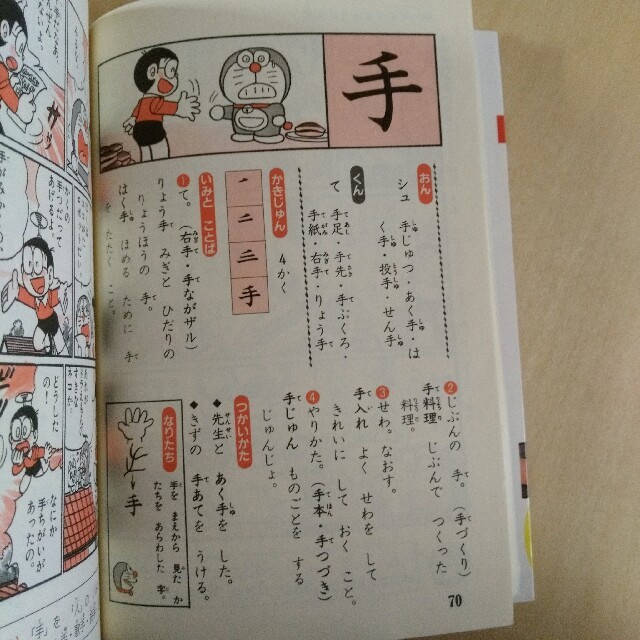 手
おん
シュ 手じゅつ・あく手・は
く手・投手・せん手
くん
て 手足・手先・手ぶくろ・
手紙・右手・りょう手
かきじゅん
4かく
手
いみと ことば
❶て。(右手・手ながザル)
りょう手 みぎと ひだりの
りょうほうの 手。
はく手 ほめる ために 手
を たたく こと。
❷じぶんの 手。(手づくり)
手料理 じぶんで つくった
料理。
❸せわ。なおす。
手入れ よく せわを して
きれいに して おく こと。
❹やりかた。(手本・手つづき)
手じゅん ものごとを する
じゅんじょ。
つかいかた
◆先生と あく手を した。
◆きずの 手あてを うける。
なりたち
手
手を まえから 見た か
たちを あらわした 字。
70
手つだって
あげるよ。
どうした
の!
なにか
手ちがいが
あったの。